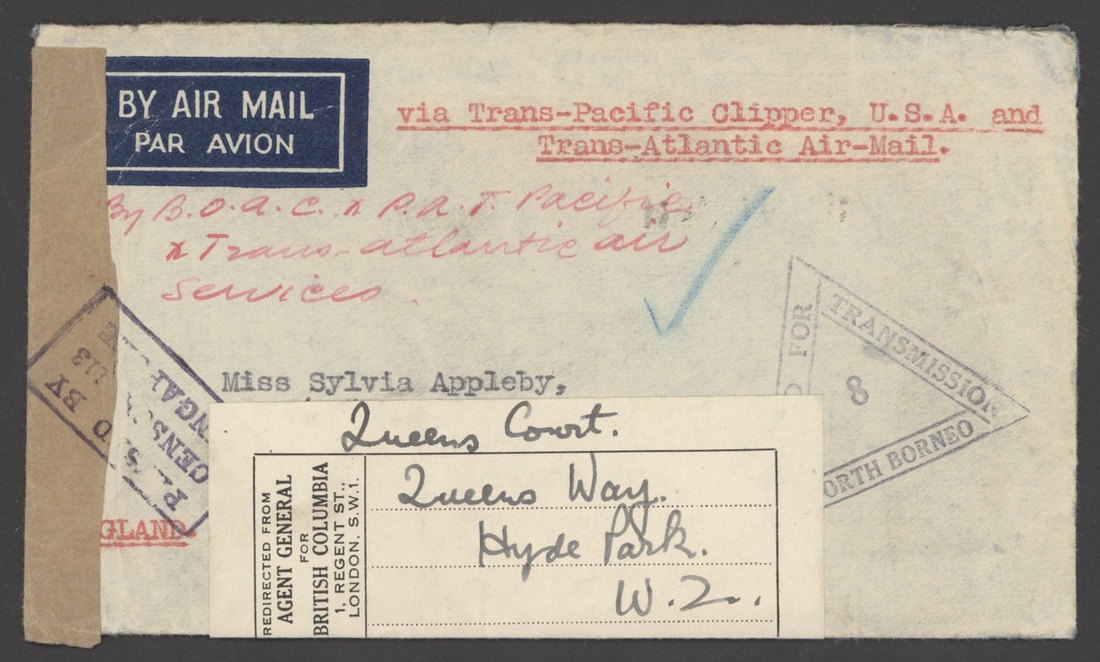 BY AIR MAIL
PAR AVION
via Trans-Pacific Clipper, U.S.A. and
Trans-Atlantic Air-Mail.
By B.O.A.C. x P.A.T. Pacific
x Trans-atlantic air
Services.
FOR
TRANSMISSION
8
ORTH BORNEO
D BY
113
Miss Sylvia Appleby,
Queens Court.
Queens Way.
Hyde Park.
W.2.
REDIRECTED FROM
AGENT GENERAL
FOR
BRITISH COLUMBIA
1, REGENT ST.,
LONDON, S.W.1.
GLAND.